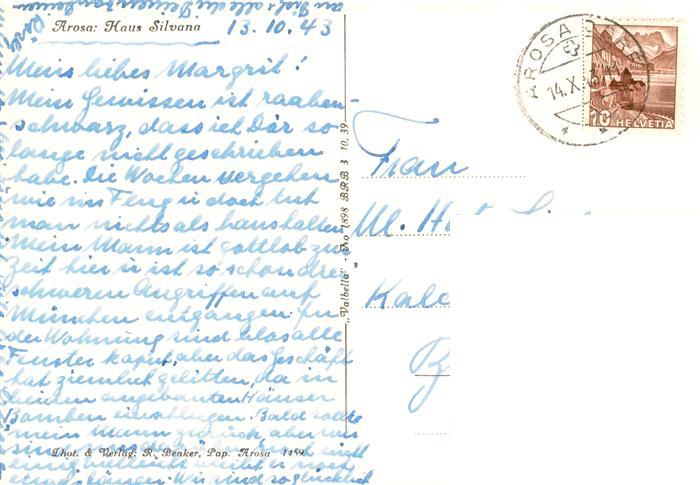 Arosa: Haus Silvana 13.10.43
Mein liebes Margrit!
Mein Gewissen ist raaben-
schwarz, dass ich Dir so
lange nicht geschrieben
habe. Die Wochen vergehen
wie im Flug u doch tut
man nichts als haushalten
Mein Mann ist gottlob zur
Zeit hier u ist so schon drei
schweren Angriffen auf
München entgangen. In
der Wohnung sind blos alle
Fenster kaput, aber das Geschäft
hat ziemlich gelitten, da in
beiden angebauten Häuser
Bomben einschlugen. Bald sollte
mein Mann zurück, aber wir
sind
Phot. & Verlag: R. Benker, Pap. Arosa 1459
vielleicht bleibt er noch
etwas können. Wir sind so glücklich
"Valbella" No 1898 BRB 3 10. 39
AROSA
14.X.
10 HELVETIA
Frau